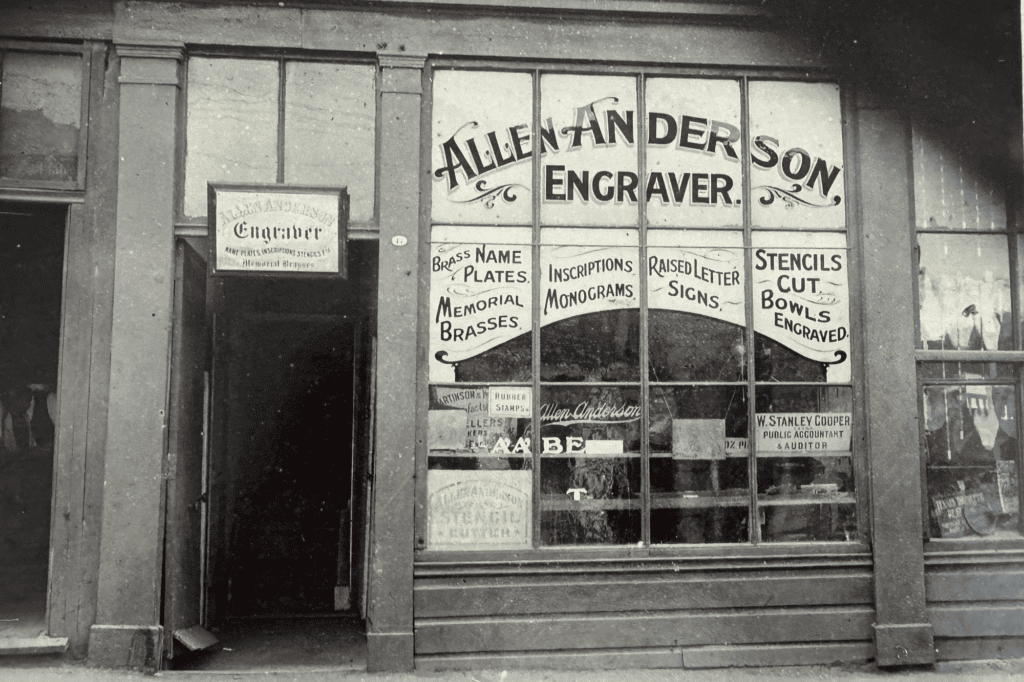 ALLEN ANDERSON
Engraver
NAME PLATES, INSCRIPTIONS STENCILS, Etc
Memorial Brasses
17
ALLEN ANDERSON
ENGRAVER.
BRASS NAME
PLATES.
MEMORIAL
BRASSES.
INSCRIPTIONS
MONOGRAMS
RAISED LETTER
SIGNS.
STENCILS
CUT.
BOWLS
ENGRAVED.
RUBBER
STAMPS
Allen Anderson
W. STANLEY COOPER
PUBLIC ACCOUNTANT
& AUDITOR
ALLEN ANDERSON
STENCIL
CUTTER